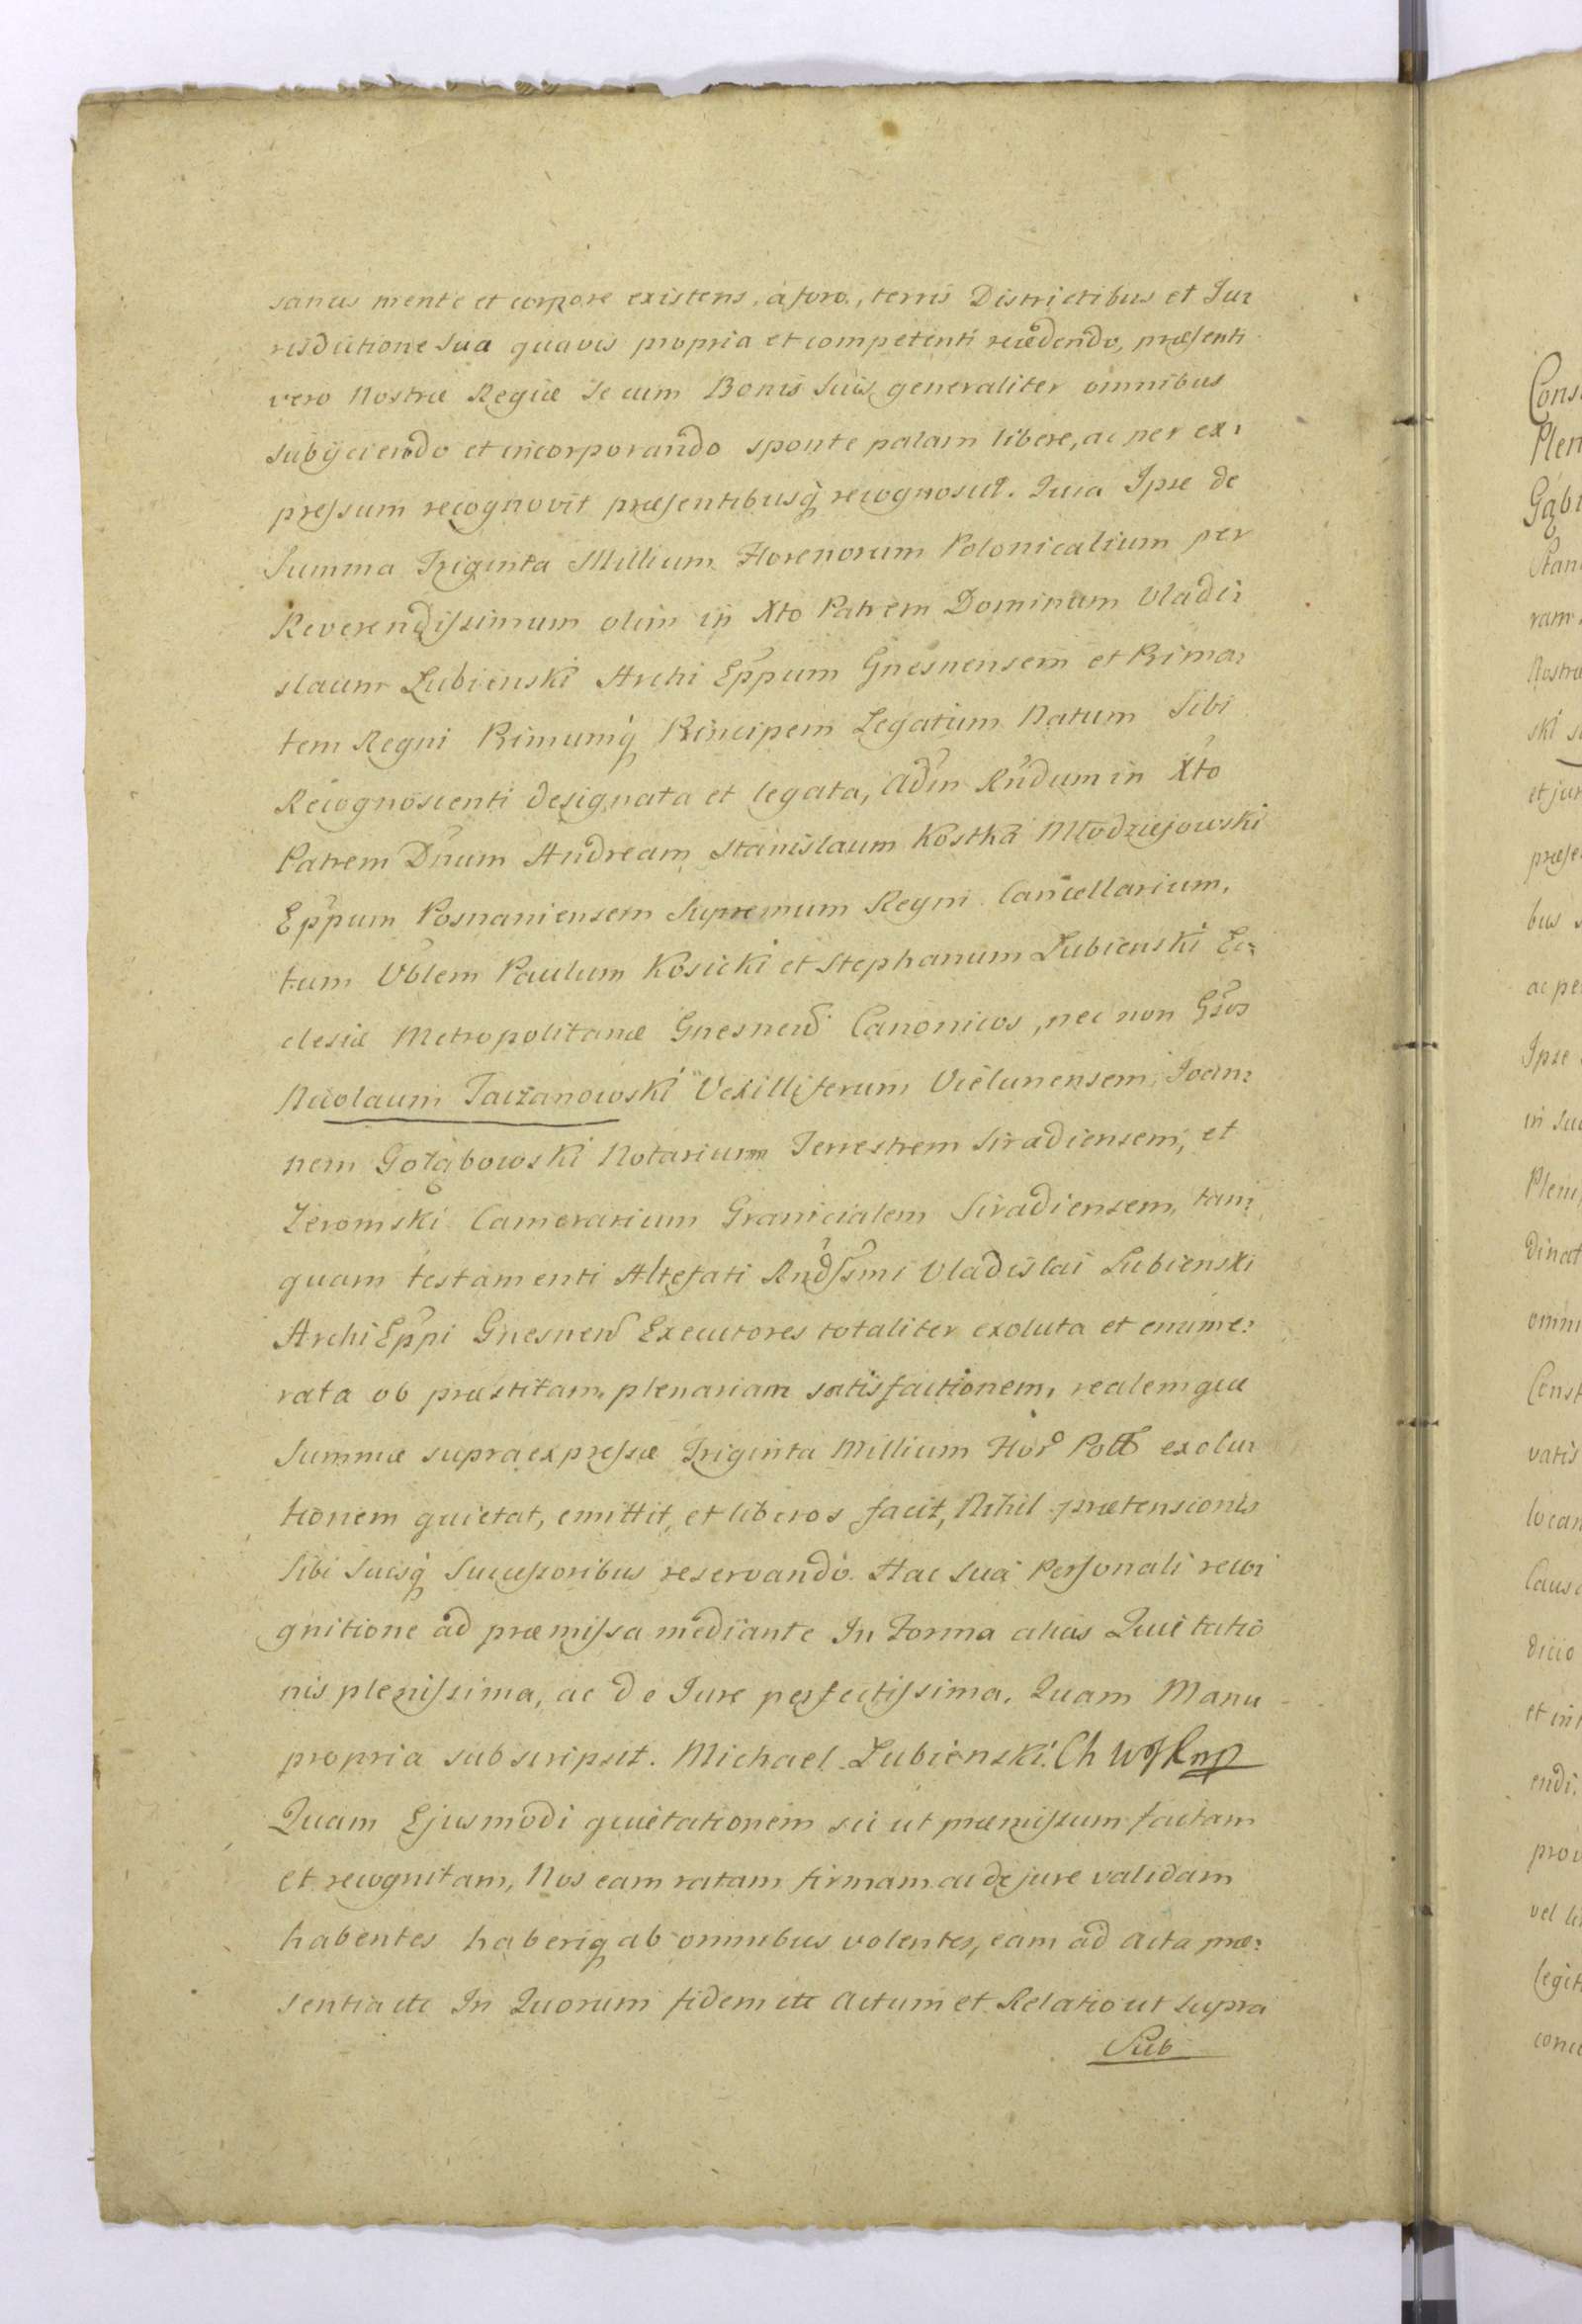 sanus mente et corpore existens, a foro, terris Districtibus et Ju:
risdictione Sua quavis propria et competenti recedendo, præsenti
vero Nostræ Regiæ se cum Bonis Suis generaliter omnibus
subÿciendo et incorporando sponte palam libere, ac per ex:
pressum recognovit præsentibusq recognoscit. Quia Ipse de
Summa Triginta Millium Florenorum Polonicalium per
Reverendissimum olim in Xto Patrem Dominum Vladi:
slaum Lubienski Archi Eppum Gnesnensem et Prima:
tem Regni Primumq Principem Legatum Natum Sibi
Recognoscenti designata et legata, Adm Rndum in Xto
Patrem Dnum Andream Stanislaum Kostka Młodziejowski
Eppum Posnaniensem Supremum Regni Cancellarium,
tum Vblem Paulum Kosicki et Stephanum Lubienski Ec:
clesiæ Metropolitanæ Gnesnen Canonicos, nec non Gsos
Nicolaum Taczanowski Vexilliferum Vielunensem, Joan:
nem Gołąbowski Notarium Terrestrem Siradiensem, et
Zeromski Camerarium Granicialem Siradiensem, tam:
quam testamenti Altefati Rndssmi Vladislai Lubienski
Archi Eppi Gnesnen Executores totaliter exoluta et enume:
rata ob præstitam plenariam satisfactionem, realemque
Summæ supraexpressæ Triginta Millium Flor Poll exolu:
tionem quietat, emittit, et liberos facit, Nihil prætensionis
Sibi Suisq Successoribus reservando. Hac Sua Personali reco:
gnitione ad præmissa mediante In Forma alias Quietatio
nis plenissima, ac de Jure perfectissima. Quam Manu
propria subscripsit. Michael Lubienski. Ch W S mp
Quam Ejusmodi quietationem sic ut præmissum factam
et recognitam, Nos eam ratam firmam ac de jure validam
habentes haberiq ab omnibus volentes, eam ad Acta præ:
sentia etc In Quorum fidem etc Actum et Relatio ut Supra
Sub
Cons
Plen
Gąb
Stan
ram
Nostra
ski
et jur
præse
bus
ac pe
Ipse
in Su
Plen
omni
Const
vatis
locan
Caus
dicio
et in
endi
prov
vel li
legit